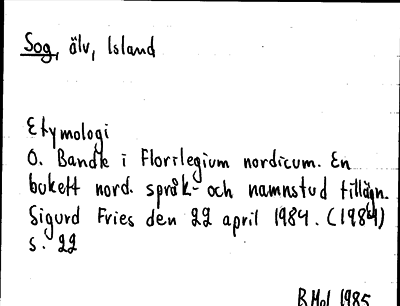 Sog, älv, Island
Etymologi
O. Bandle i Florilegium nordicum. En
bukett nord. språk- och namnstud tillägn.
Sigurd Fries den 22 april 1984. (1984)
s. 22
B Mol 1985